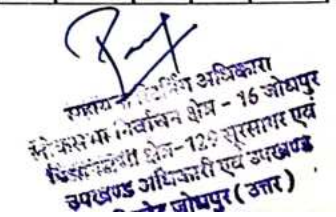 रिटर्निंग अधिकारी
लोकसभा निर्वाचन क्षेत्र - 16 जोधपुर
विधानसभा क्षेत्र-129 सूरसागर एवं
उपखण्ड अधिकारी एवं उपखण्ड
जोधपुर (उत्तर)